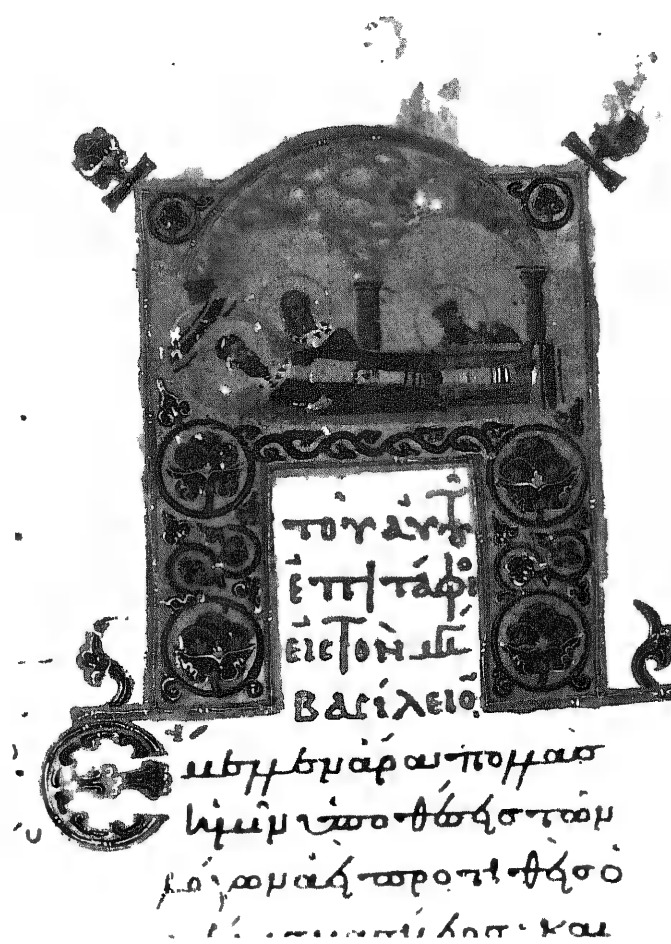 τοῦ ἀυτοῦ
ἐπιτάφιο
εἰς τὸν μέ
βασίλειο
Ἔμελλεν ἄρα πολλὰς
ἡμῖν ὑποθέσεις τῶν
λόγων ἀεὶ προτιθεὶς ὁ
και